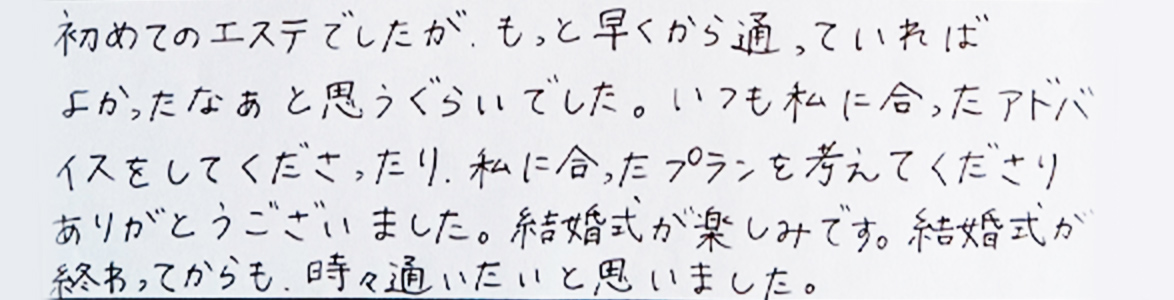 初めてのエステでしたが、もっと早くから通っていれば
よかったなぁと思うぐらいでした。いつも私に合ったアドバ
イスをしてくださったり、私に合ったプランを考えてくださり
ありがとうございました。結婚式が楽しみです。結婚式が
終わってからも、時々通いたいと思いました。